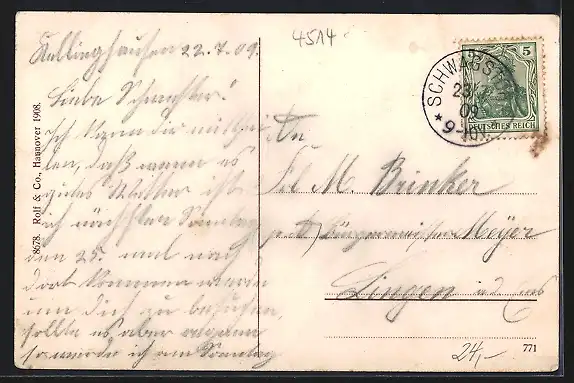 Kellinghausen 22.7.09.
Liebe Schwester!
Ich kann dir mitthei
len, daß wenn es
gutes Wetter ist
ich nächsten Sonntag
den 25. mal nach
dort kommen werde
um dich zu besuchen,
sollte es aber regnen
so werde ich am Sonntag
8678. Rolf & Co., Hannover 1908.
4514
SCHWAGSTORF
23.7
09
* 9-10V.
5
DEUTSCHES REICH
An
Frl M. Brinker
p. Ad. Bürgermeister Meyer
Lingen a/d Ems
24,-
771